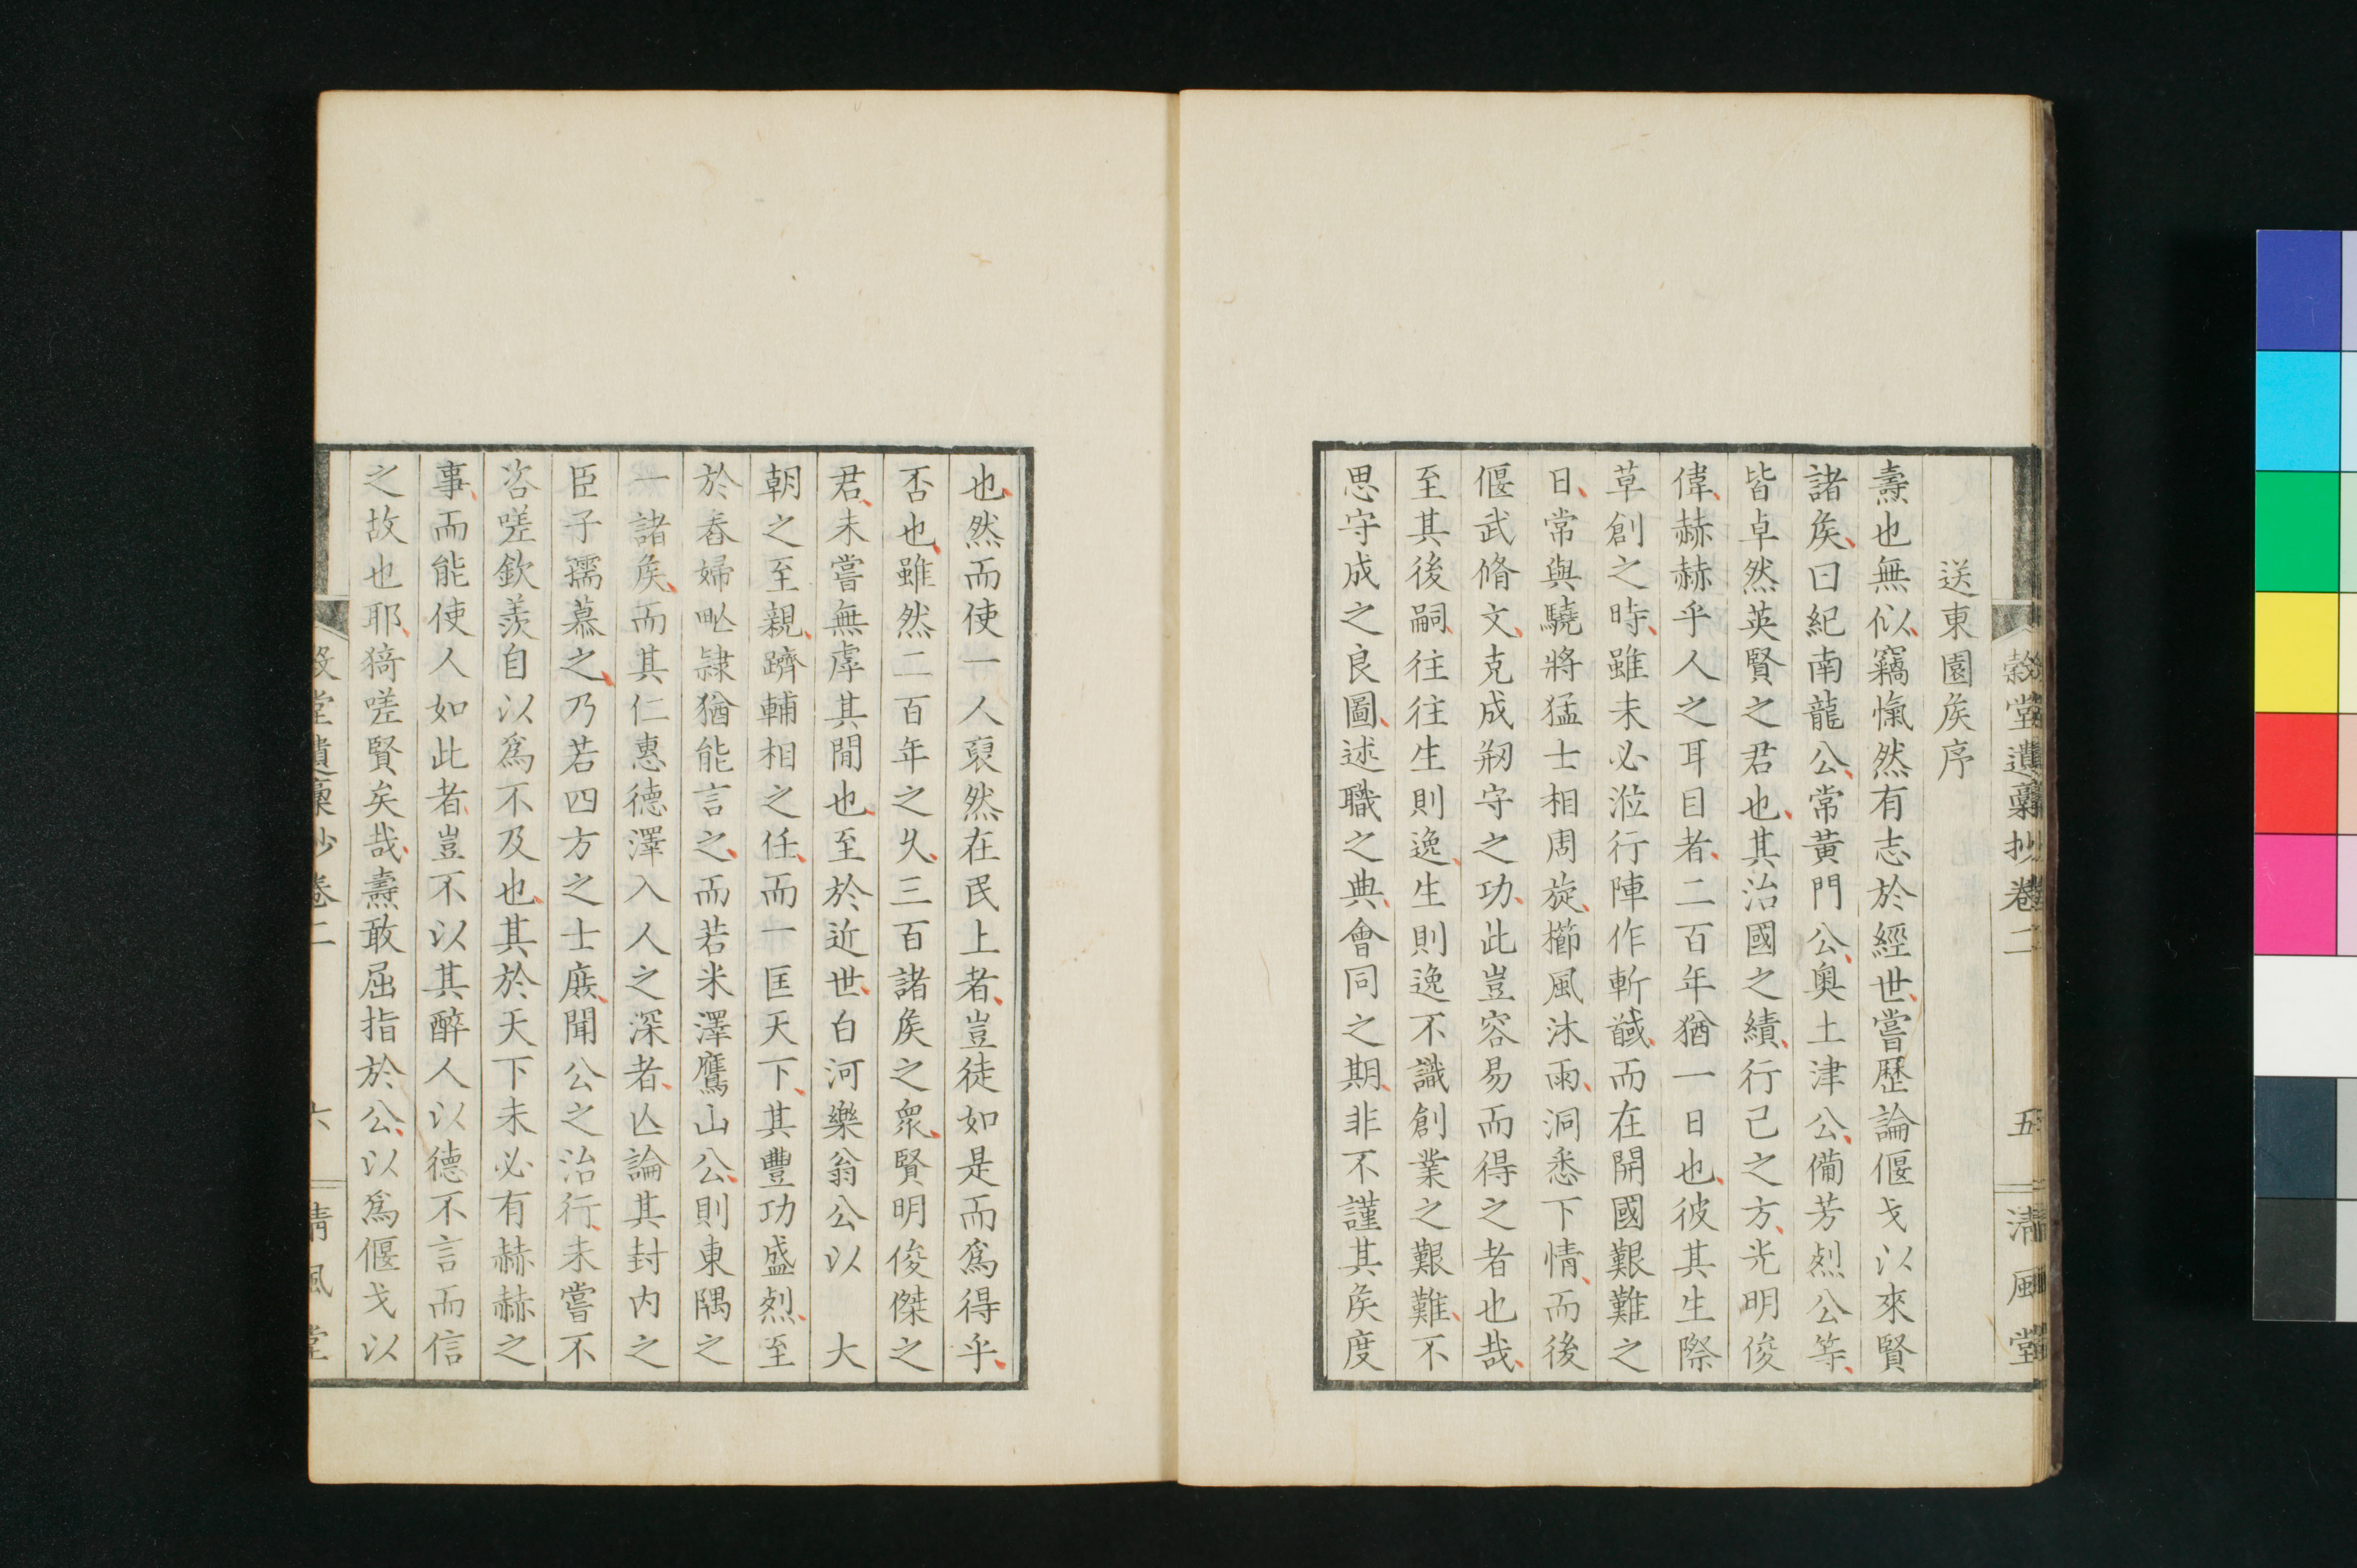 穀堂遺稾抄卷二 五 清風堂
送東園矦序
壽也無似竊愾然有志於經世嘗歷論偃戈以來賢
諸矦曰紀南龍公常黃門公奧土津公備芳烈公等
皆卓然英賢之君也其治國之績行己之方光明俊
偉赫赫乎人之耳目者二百年猶一日也彼其生際
草創之時雖未必涖行陣作斬馘而在開國艱難之
日常與驍將猛士相周旋櫛風沐雨洞悉下情而後
偃武脩文克成剏守之功此豈容易而得之者也哉
至其後嗣往往生則逸生則逸不識創業之艱難不
思守成之良圖述職之典會同之期非不謹其矦度
也然而使一人裒然在民上者豈徒如是而爲得乎
否也雖然二百年之久三百諸矦之衆賢明俊傑之
君未嘗無虖其間也至於近世白河樂翁公以 大
朝之至親躋輔相之任而一匡天下其豐功盛烈至
於舂婦畆隷猶能言之而若米澤鷹山公則東隅之
一諸矦而其仁惠德澤入人之深者亾論其封内之
臣子孺慕之乃若四方之士庶聞公之治行未嘗不
咨嗟欽羨自以爲不及也其於天下未必有赫赫之
事而能使人如此者豈不以其醉人以德不言而信
之故也耶猗嗟賢矣哉壽敢屈指於公以爲偃戈以
穀堂遺稾抄卷二 六 清風堂